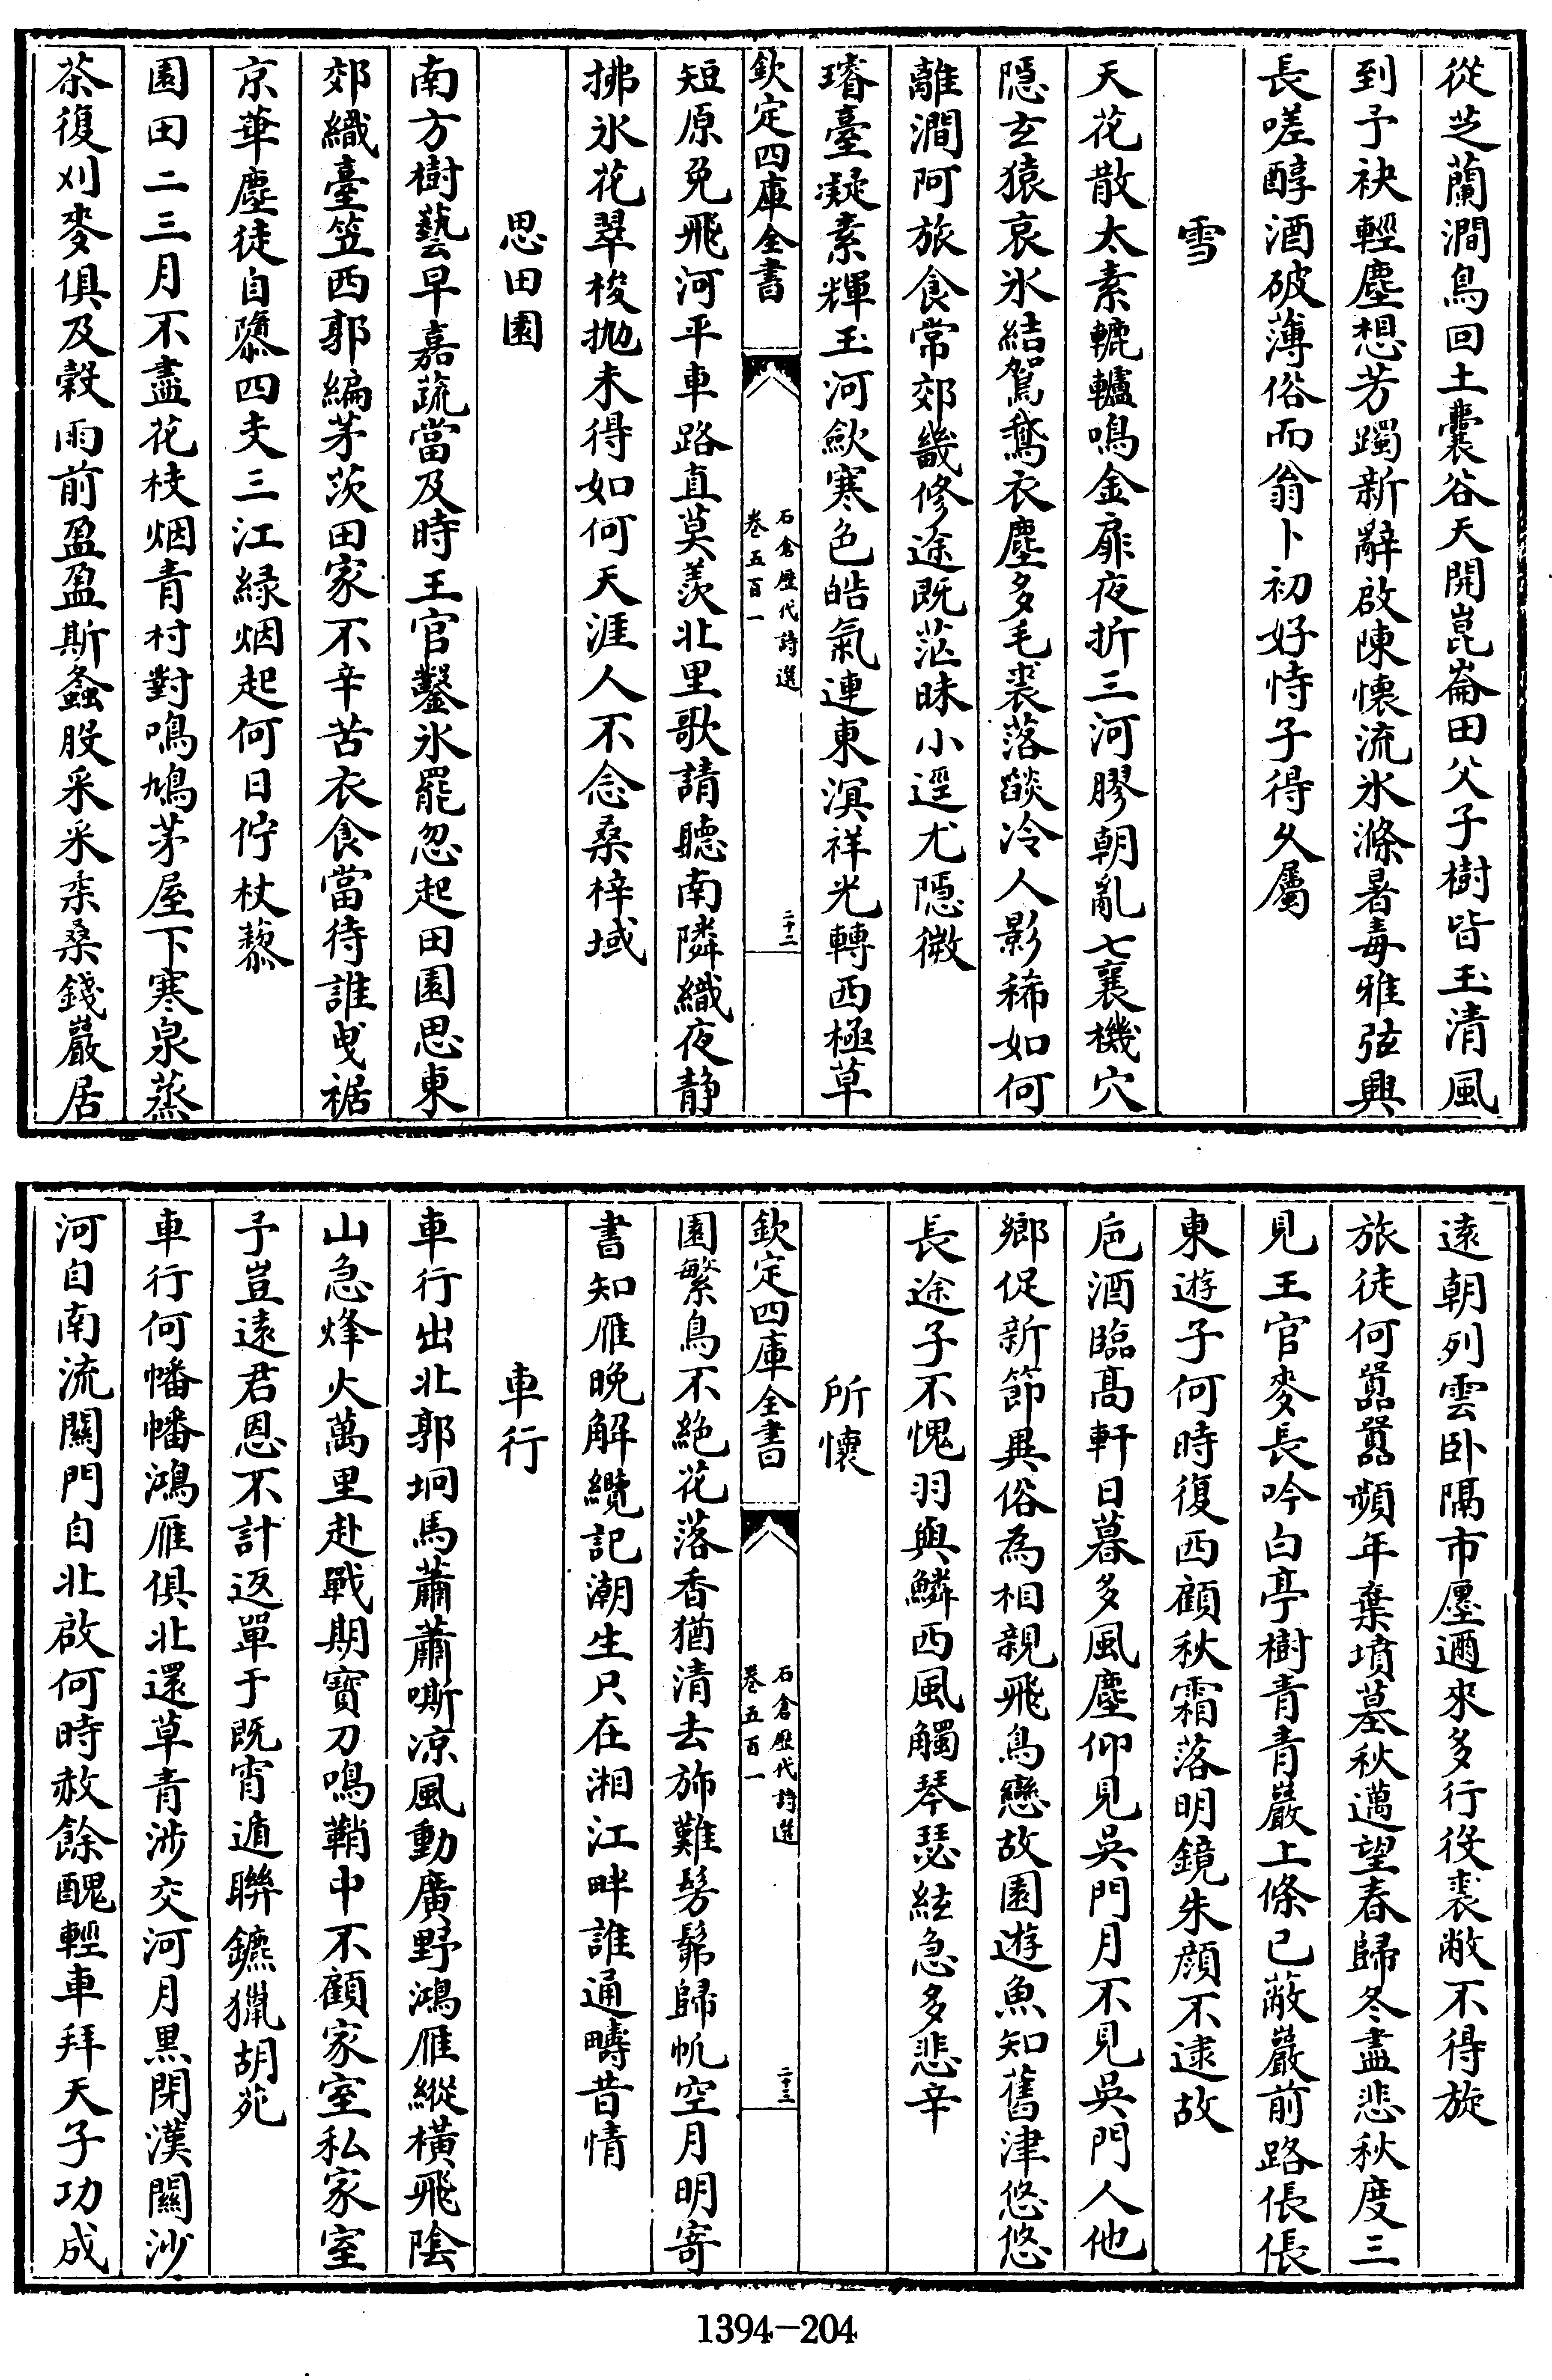 從芝蘭澗鳥回土囊谷天開崑崙田父子樹皆玉清風
到予袂輕塵想芳躅新辭啟陳懷流氷滌暑毒雅弦興
長嗟醇酒破薄俗而翁卜初好恃子得久屬
雪
天花散太素轆轤鳴金扉夜折三河膠朝亂七襄機穴
隠玄猿哀氷結駕鵞衣塵多毛裘落燄冷人影稀如何
離澗阿旅食常郊畿修途既茫昧小逕尤隠微
璿臺凝素輝玉河歛寒色皓氣連東溟祥光轉西極草
欽定四庫全書
石倉歷代詩選
卷五百一
二十二
短原免飛河平車路直莫羨北里歌請聽南隣織夜静
拂氷花翠梭拋未得如何天涯人不念桑梓域
思田園
南方樹藝早嘉蔬當及時王官鑿氷罷忽起田園思東
郊織臺笠西郭編茅茨田家不辛苦衣食當待誰曳裾
京華塵徒自隳四支三江緑烟起何日佇杖藜
園田二三月不盡花枝烟青村對鳴鳩茅屋下寒泉蒸
茶復刈麥俱及穀雨前盈盈斯螽股采采桑錢巖居
遠朝列雲卧隔市廛邇來多行役裘敝不得旋
旅徒何囂囂頻年棄墳墓秋邁望春歸冬盡悲秋度三
見王官麥長吟白亭樹青青巖上條已蔽巖前路倀倀
東遊子何時復西顧秋霜落明鏡朱顔不逮故
巵酒臨髙軒日暮多風塵仰見吳門月不見吳門人他
鄉促新節異俗為相親飛鳥戀故園遊魚知舊津悠悠
長途子不愧羽與鱗西風觸琴瑟絃急多悲辛
所懷
欽定四庫全書
石倉歷代詩選
卷五百一
二十三
園繁鳥不絶花落香猶清去斾難髣髴歸帆空月明寄
書知雁晚解纜記潮生只在湘江畔誰通疇昔情
車行
車行出北郭坰馬蕭蕭嘶凉風動廣野鴻雁縱橫飛陰
山急烽火萬里赴戰期寶刀鳴鞘中不顧家室私家室
予豈遠君恩不計返單于既宵遁聯鑣獵胡苑
車行何幡幡鴻雁俱北還草青涉交河月黒閉漢關沙
河自南流關門自北啟何時赦餘醜輕車拜天子功成
1394-204